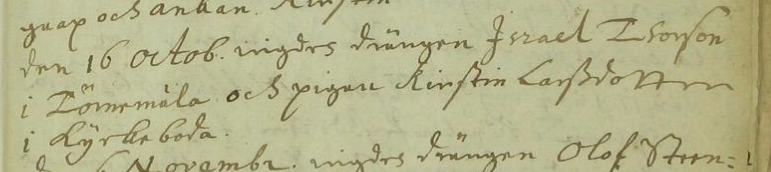 och ankan. Kirstin
den 16 octob. wigdes drängen Israel Isonson
i Törnemåla och pigan Kirstin Larßdotter
i Kyrkeboda.
Novembr. wigdes drängen Olof Steen=